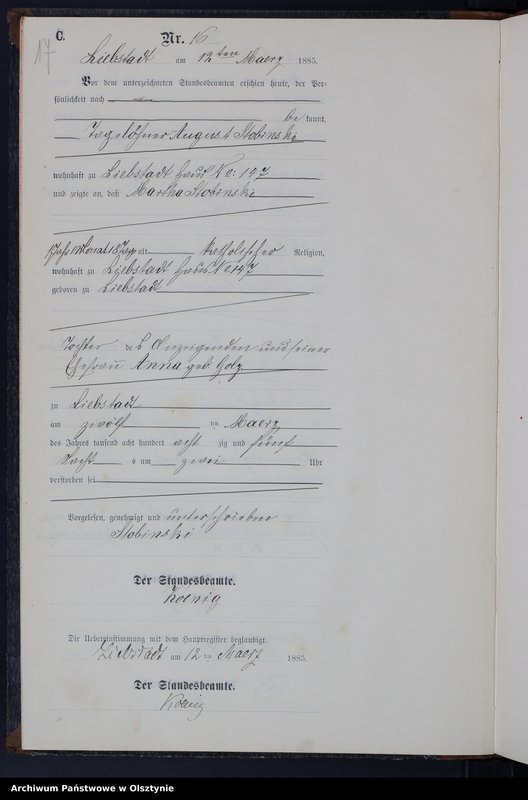 C.
17
Nr. 16
Liebstadt am 12ten Maerz 1885.
Vor dem unterzeichneten Standesbeamten erschien heute, der Per-
sönlichkeit nach
be kannt,
Tagelöhner August Stobinski
wohnhaft zu Liebstadt Haus No: 127
und zeigte an, daß Martha Stobinski
1 Jahr 1 Monat 18 Tage alt, katholischer Religion,
wohnhaft zu Liebstadt Haus No 127
geboren zu Liebstadt
Tochter des Anzeigenden und seiner
Ehefrau Anna geb. Golz
zu Liebstadt
am zwölften Maerz
des Jahres tausend acht hundert achtzig und fünf
Nachts um zwei Uhr
verstorben sei
Vorgelesen, genehmigt und unterschrieben
Stobinski
Der Standesbeamte.
Koenig
Die Uebereinstimmung mit dem Hauptregister beglaubigt.
Liebstadt am 12 ten Maerz 1885.
Der Standesbeamte.
Koenig
Archiwum Państwowe w Olsztynie